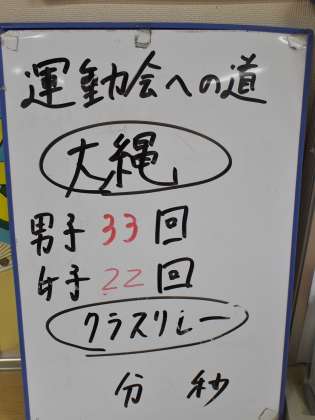 運動会への道
大縄
男子 33 回
女子 22 回
クラスリレー
分 秒